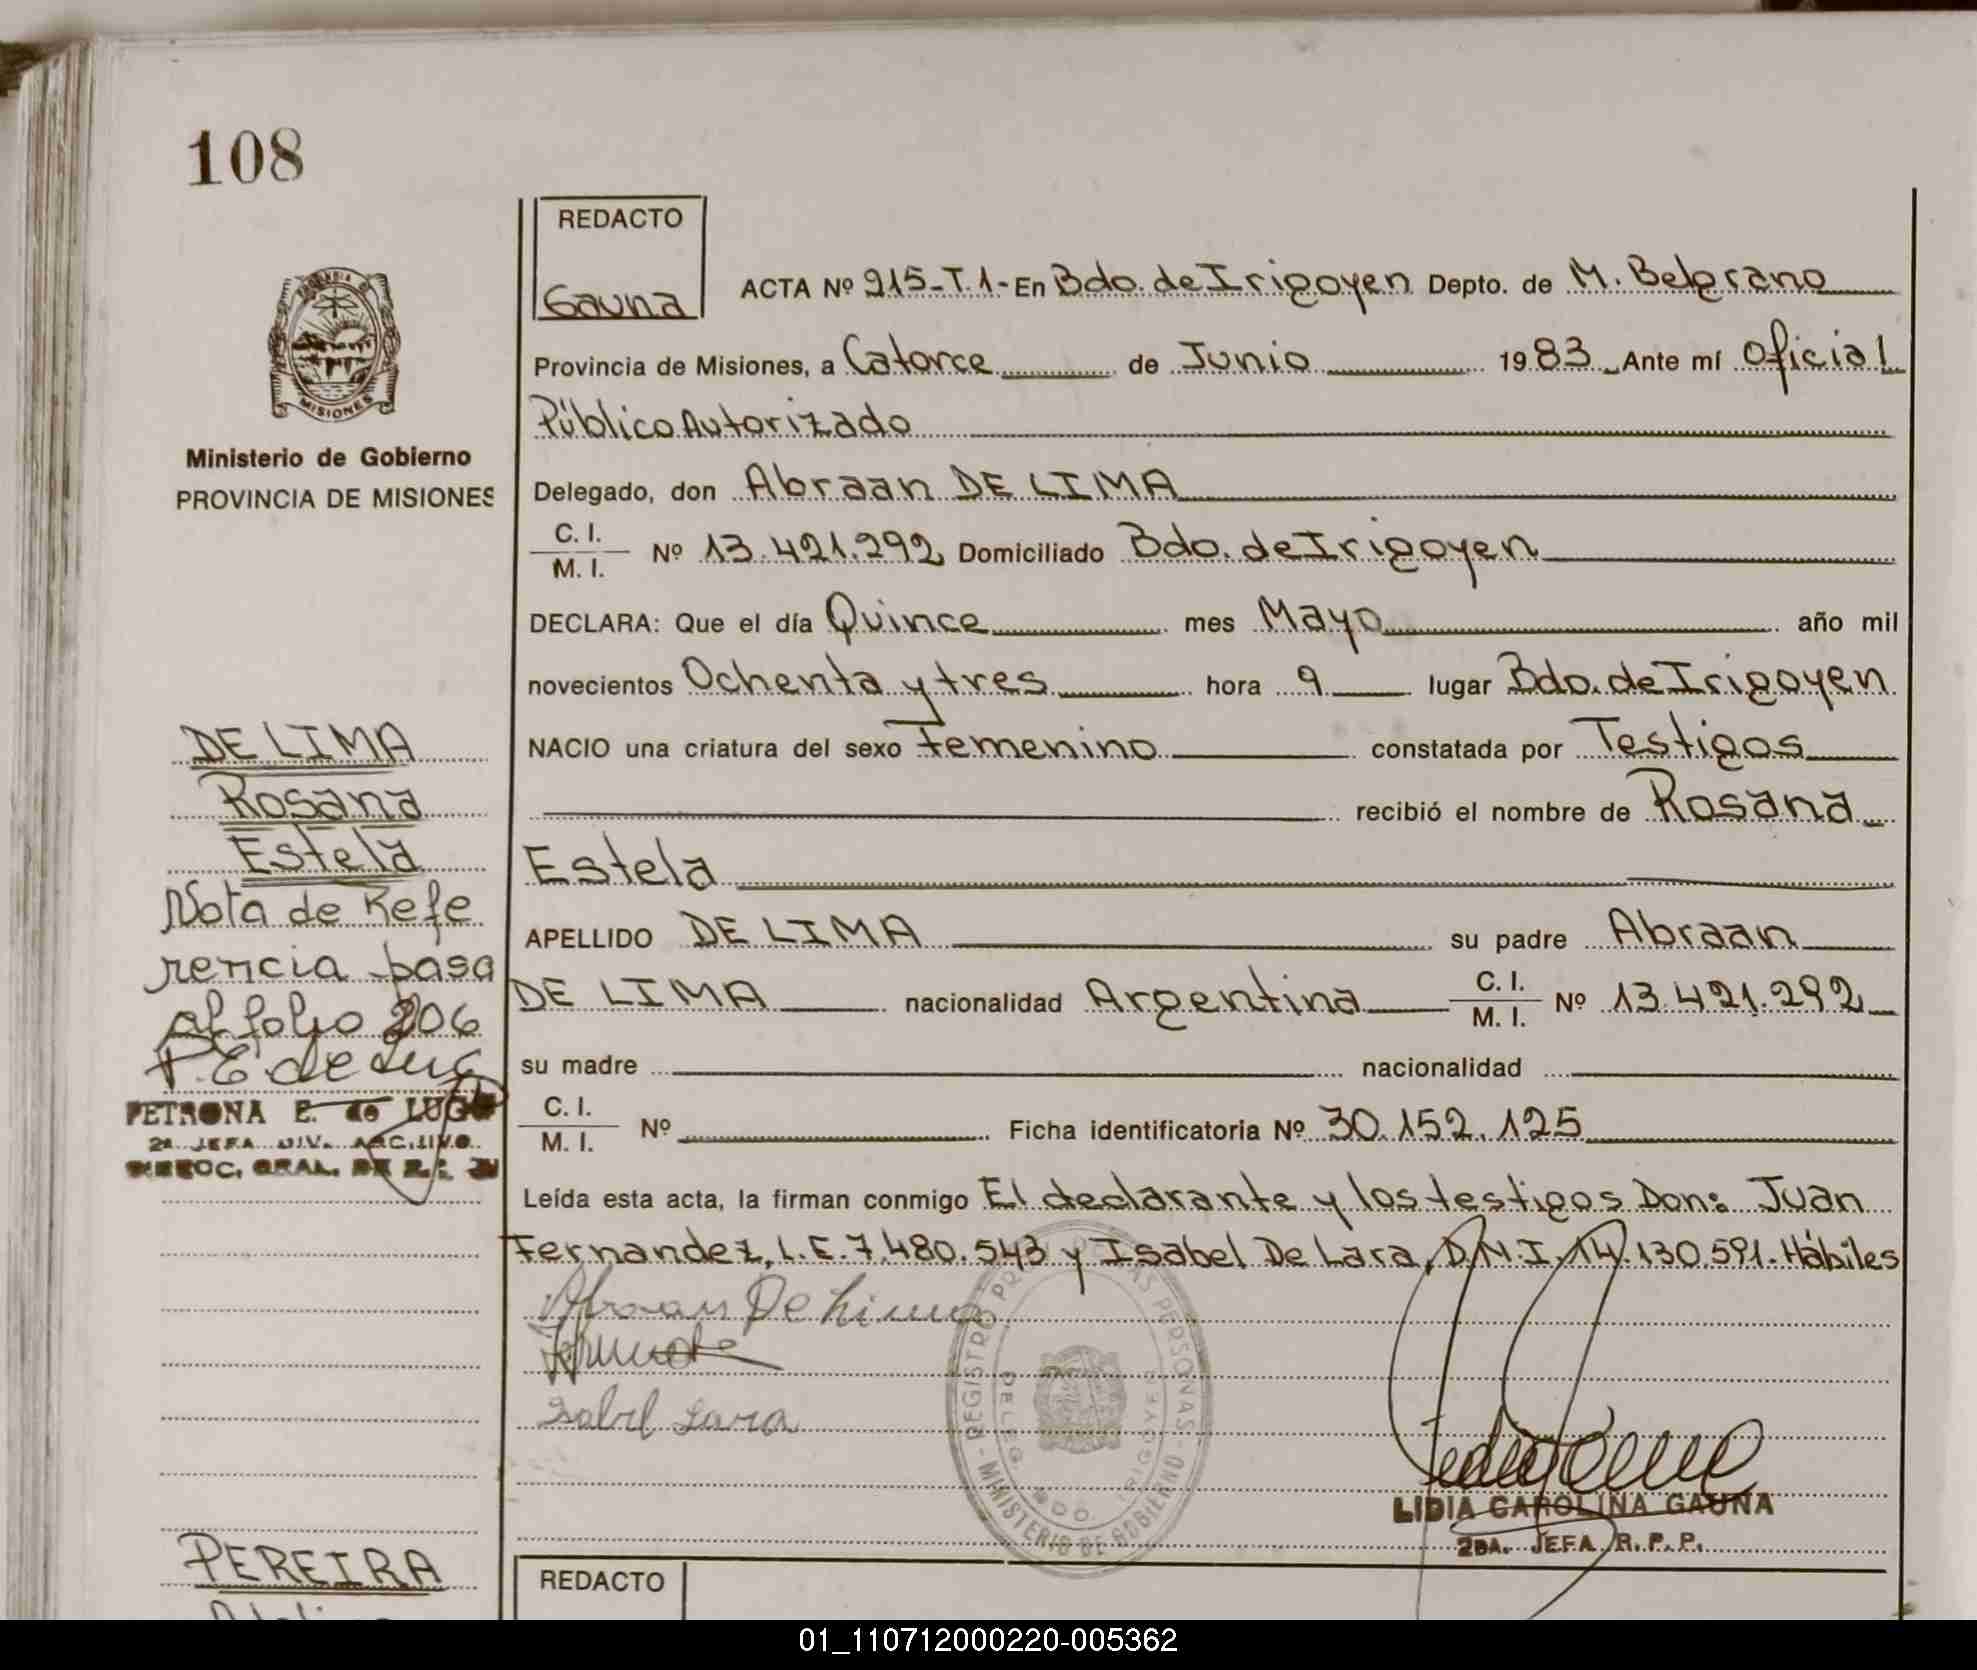 108
REDACTO
Gauna
ACTA Nº 215-T.1- En Bdo. de Irigoyen Depto. de M. Belgrano
Provincia de Misiones, a Catorce de Junio 1983 Ante mí Oficial
Público Autorizado
Delegado, don Abraan DE LIMA
C. I.
M. I. Nº 13.421.292 Domiciliado Bdo. de Irigoyen
DECLARA: Que el día Quince mes Mayo año mil
novecientos Ochenta y tres hora 9 lugar Bdo. de Irigoyen
NACIO una criatura del sexo Femenino constatada por Testigos
recibió el nombre de Rosana
Estela
APELLIDO DE LIMA su padre Abraan
DE LIMA nacionalidad Argentina C. I. M. I. Nº 13.421.292
su madre nacionalidad
C. I.
M. I. Nº Ficha identificatoria Nº 30.152.125
Leída esta acta, la firman conmigo El declarante y los testigos Don: Juan
Fernandez, L.E. 7.480.543 y Isabel De Lara, D.N.I. 14.130.591. Hábiles
Abraan De Lima
Isabel Lara
REGISTRO PROV. DE LAS PERSONAS - MINISTERIO DE GOBIERNO -
DELEG. BDO. IRIGOYEN
LIDIA CAROLINA GAUNA
2DA. JEFA R. P. P.
REDACTO
MISIONES
Ministerio de Gobierno
PROVINCIA DE MISIONES
DE LIMA
Rosana
Estela
Nota de Refe
rencia pasa
al folio 206
P. E. de Lugo
PETRONA E. de LUGO
2a JEFA DIV. ARCHIVO
PEREIRA
01_110712000220-005362